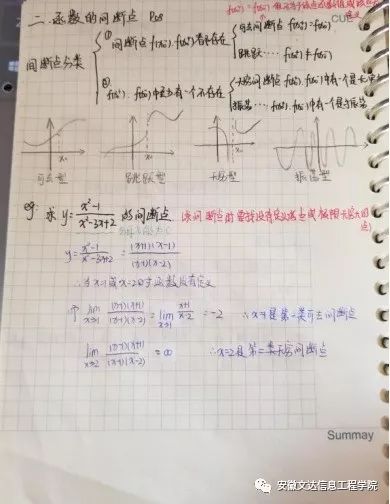 二.函数的间断点 Pos
间断点分类
① 间断点f(x₀⁻).f(x₀⁺)都存在
可去间断点 f(x₀⁻)=f(x₀⁺)
跳跃… f(x₀⁻)≠f(x₀⁺)
② f(x₀⁻).f(x₀⁺)中至少有一个不存在
无穷间断点 f(x₀⁻).f(x₀⁺)中有一个是无穷
振荡… f(x₀⁻).f(x₀⁺)中有一个是振荡
x₀ x₀ x₀
可去型 跳跃型 无穷型 振荡型
eg: 求 y= x²-1 / x²-3x+2 的间断点
y= x²-1 / x²-3x+2 = (x+1)(x-1) / (x-1)(x-2)
∴当x=1或x=2时函数没有定义
lim x→1 (x-1)(x+1) / (x-1)(x-2) = lim x→1 x+1 / x-2 = -2 ∴x=1是第一类可去间断点
lim x→2 (x-1)(x+1) / (x-1)(x-2) = ∞ ∴x=2是第二类无穷间断点
Summay
安徽文达信息工程学院